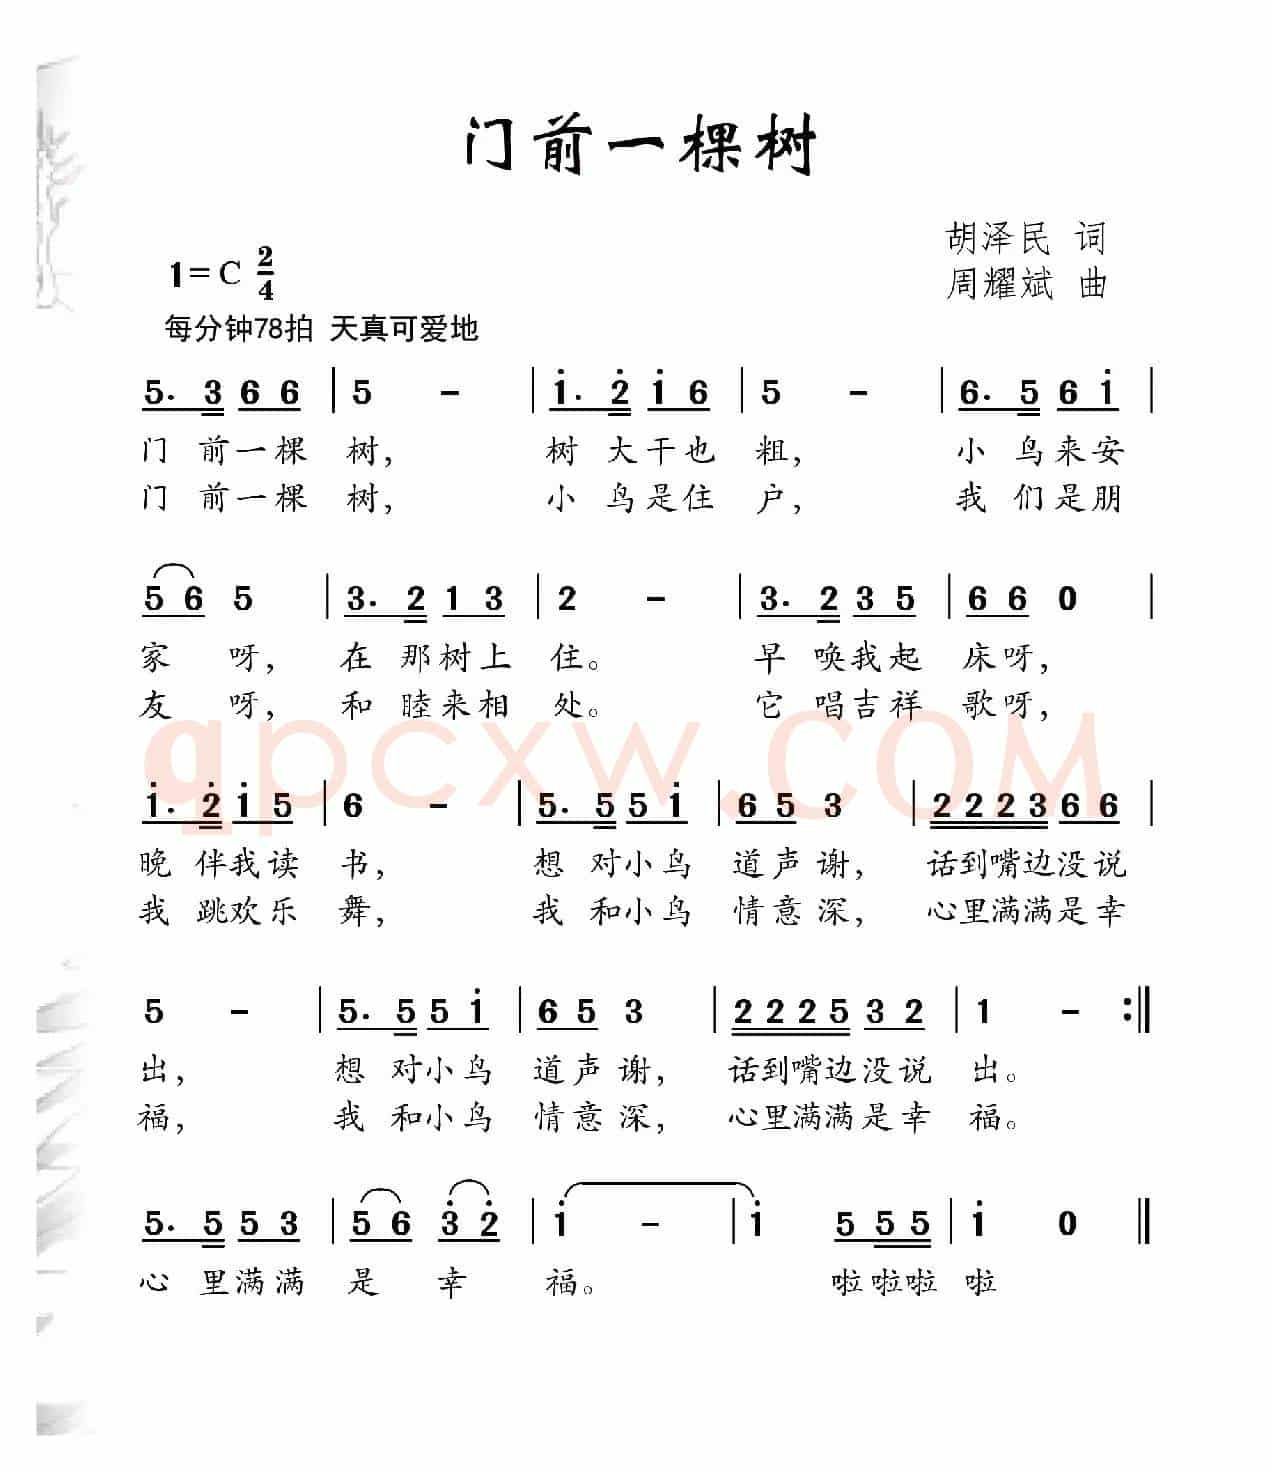 门前一棵树
胡泽民 词
1=C 2/4
周耀斌 曲
每分钟78拍 天真可爱地
5. 3 6 6 | 5 - | i. 2̇ i 6 | 5 - | 6. 5 6 i |
门 前一棵 树, 树 大干也 粗, 小 鸟来安
门 前一棵 树, 小 鸟是住 户, 我 们是朋
5 6 5 | 3. 2 1 3 | 2 - | 3. 2 3 5 | 6 6 0 |
家 呀, 在 那树上 住。 早 唤我起 床呀,
友 呀, 和 睦来相 处。 它 唱吉祥 歌呀,
qpcxw.COM
i. 2̇ i 5 | 6 - | 5. 5 5 i | 6 5 3 | 2 2 2 3 6 6 |
晚 伴我读 书, 想 对小鸟 道声谢, 话到嘴边没说
我 跳欢乐 舞, 我 和小鸟 情意深, 心里满满是幸
5 - | 5. 5 5 i | 6 5 3 | 2 2 2 5 3 2 | 1 - :‖
出, 想 对小鸟 道声谢, 话到嘴边没说 出。
福, 我 和小鸟 情意深, 心里满满是幸 福。
5. 5 5 3 | 5 6 3̇ 2̇ | i - | i 5 5 5 | i 0 ‖
心 里满满 是 幸 福。 啦啦啦 啦